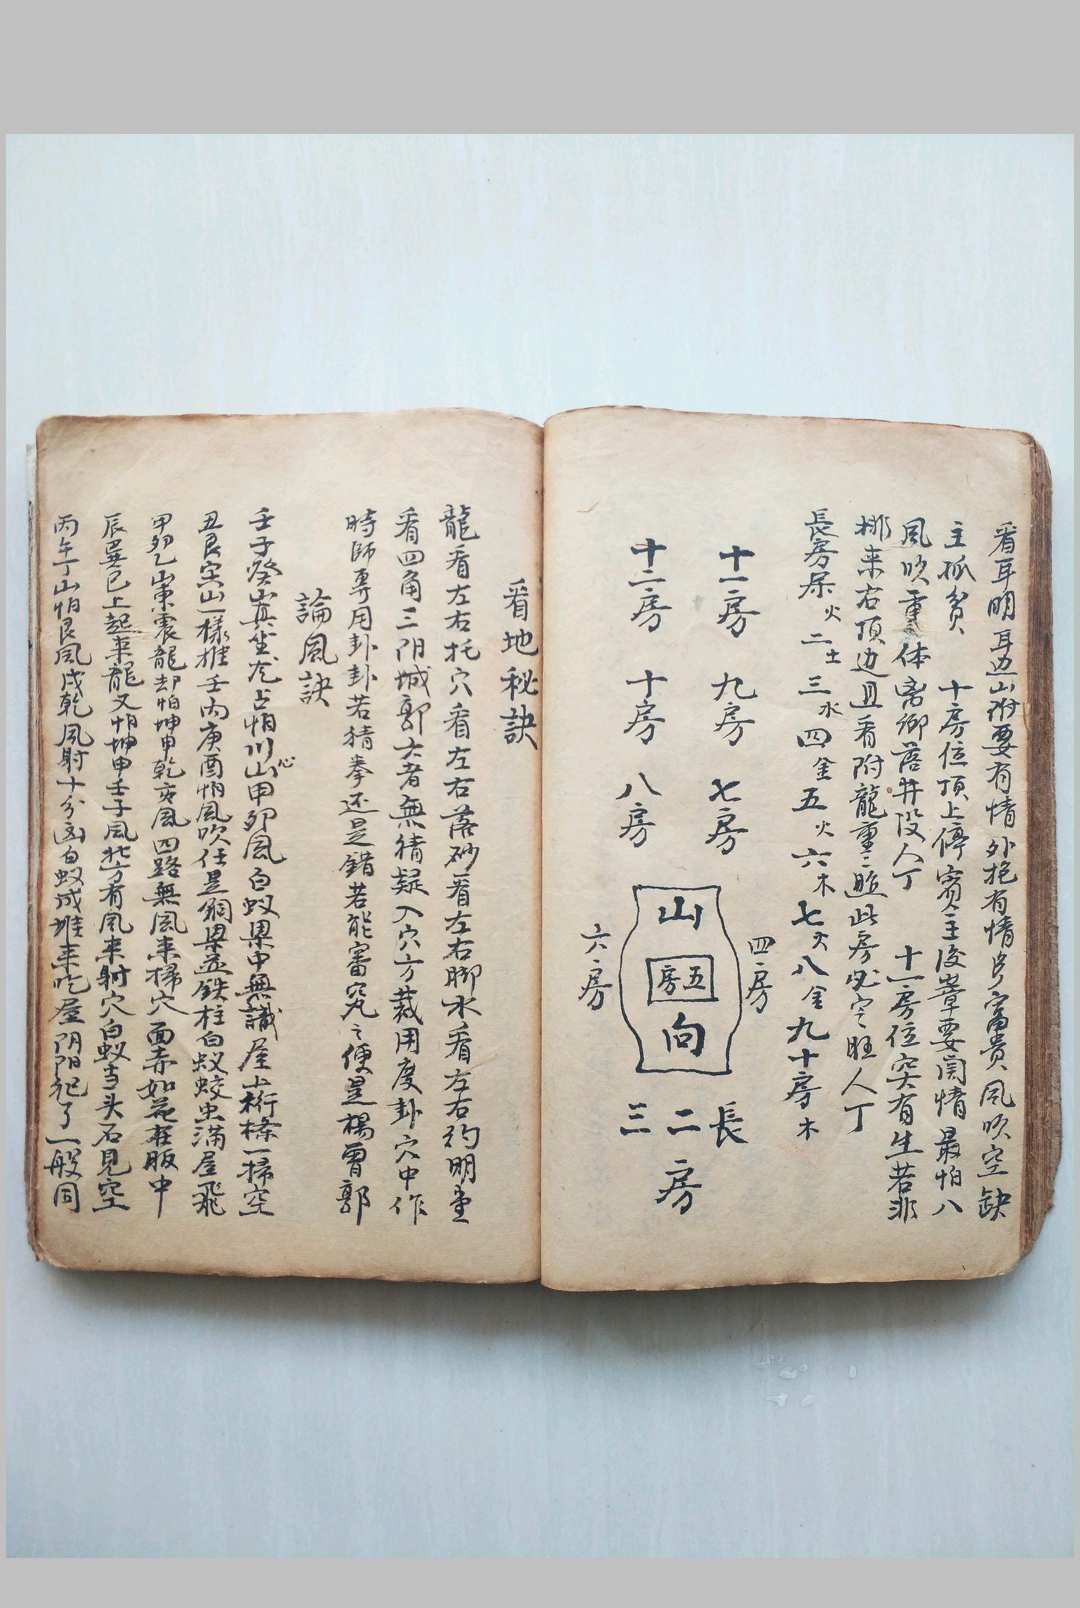 看耳明耳边山附要有情外抱有情多富貴風吹空缺
主孤貧 十房位頂上停賓主後靠要関情最怕八
風吹重体离卿落井没人丁 十一房位突有生若非
梛来右頂边且看附龍重々照此房必定旺人丁
長房屎火二土三水四金五火六木七火八金九十房木
十一房 九房 七房
十二房 十房 八房
四房
山
五房
向
六房
長
二房
三
看地秘訣
龍看左右托穴看左右落砂看左右脚水看左右約明堂
看四角三阴城郭大者無猜疑入穴方裁用度卦穴中作
時師專用卦卦若猜拳还是錯若能審究之便是楊曾郭
論風訣
壬子癸山真坐龙占怕川心山甲卯風白蚁梁中無識屋上桁條一掃空
丑艮寅山一樣推壬丙庚酉怕風吹任是銅梁並鉄柱白蚁蛟虫满屋飛
甲卯乙山東震龍却怕坤申乾亥風四路無風来掃穴面赤如花在眼中
辰巽巳上起来龍又怕坤申壬子風北方有風来射穴白蚁当头石見空
丙午丁山怕艮風戌乾風射十分凶白蚁成堆来吃屋阴阳犯了一般同